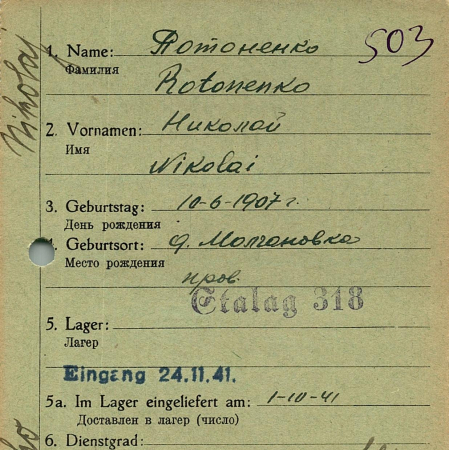 503
1. Name: Потоненко
Фамилия
Rotonenko
Nikolaj
2. Vornamen: Николай
Имя
Nikolai
3. Geburtstag: 10-6-1907 г.
День рождения
4. Geburtsort: д. Молчановка
Место рождения
пров.
Stalag 318
5. Lager:
Лагер
Eingang 24.11.41.
5a. Im Lager eingeliefert am: 1-10-41
Доставлен в лагер (число)
6. Dienstgrad: